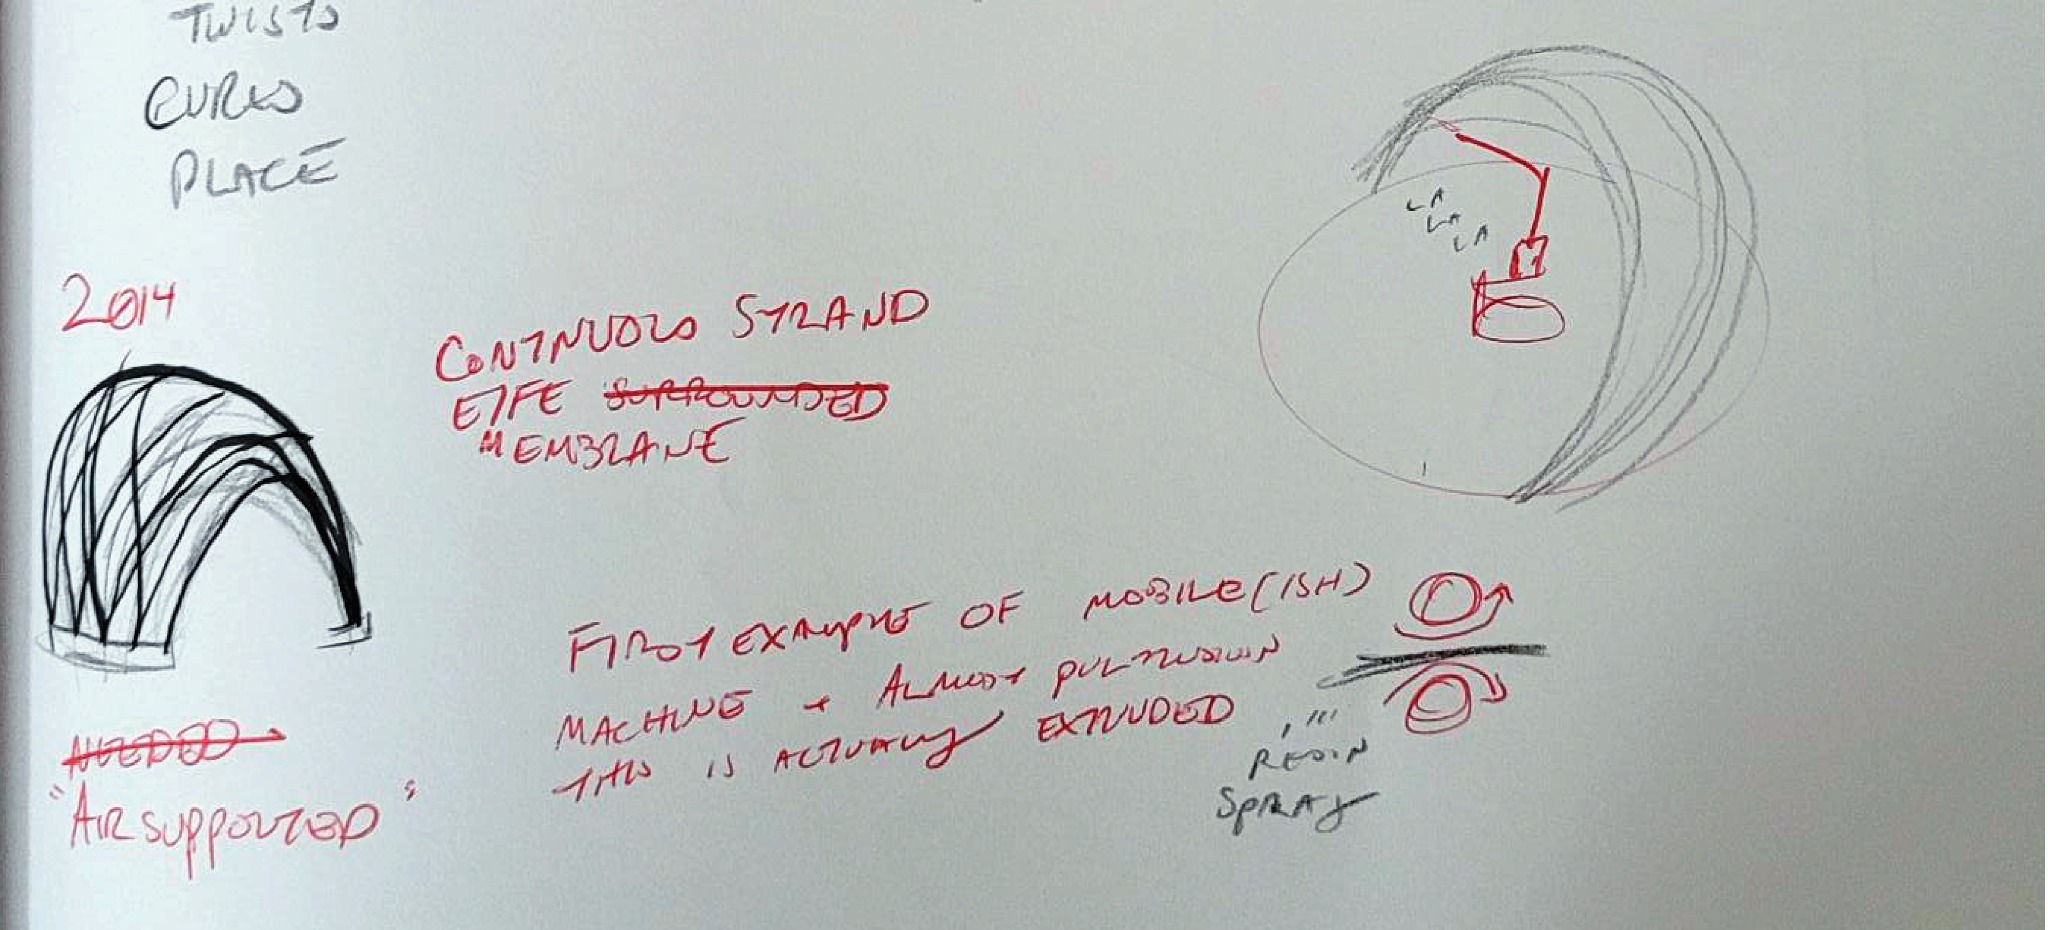 TWISTS
CURLS
PLACE
2014
CONTINUOUS STRAND
ETFE SURROUNDED
MEMBRANE
LA
LA
LA
FIRST EXAMPLE OF MOBILE (ISH)
MACHINE + ALMOST PULTRUSION
THIS IS ACTUALLY EXTRUDED
RESIN
SPRAY
NEEDED
"AIR SUPPORTED"